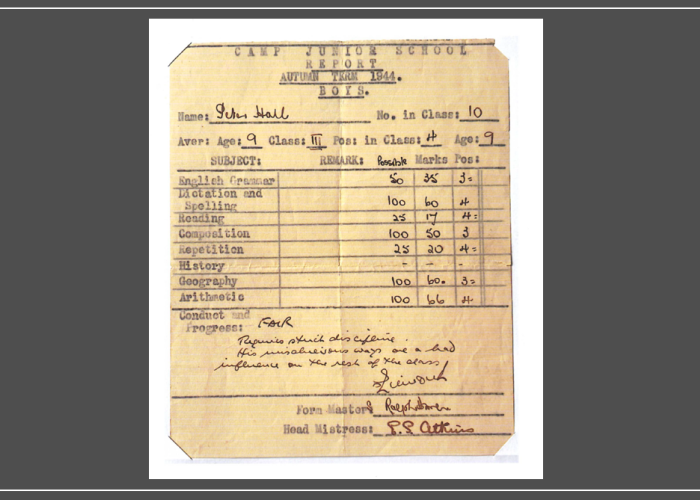 CAMP JUNIOR SCHOOL
REPORT
AUTUMN TERM 1944.
BOYS.
Name: Peter Hall No. in Class: 10
Aver: Age: 9 Class: III Pos: in Class: 4 Age: 9
SUBJECT: REMARK: Possible Marks Pos:
English Grammar 50 35 3=
Dictation and
Spelling 100 60 4
Reading 25 17 4=
Composition 100 50 3
Repetition 25 20 4=
History - - -
Geography 100 60. 3=
Arithmetic 100 66 4
Conduct and
Progress: FAIR
Requires strict discipline.
His mischievous ways are a bad
influence on the rest of the class
Form Master:
Head Mistress: P.S. Atkins